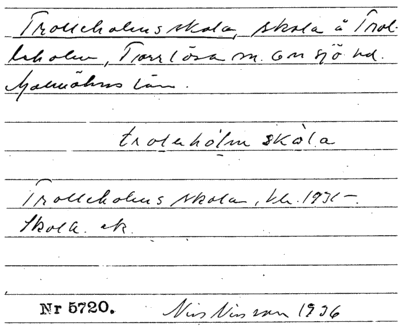 Trolleholms skola, skola å Trol-
leholm, Torrlösa sn. Onsjö hd.
Malmöhus län.
trolehòlm skòla
Trolleholms skola, kr. 1931-
Skola. ek.
Nr 5720. Nils Nilsson 1936